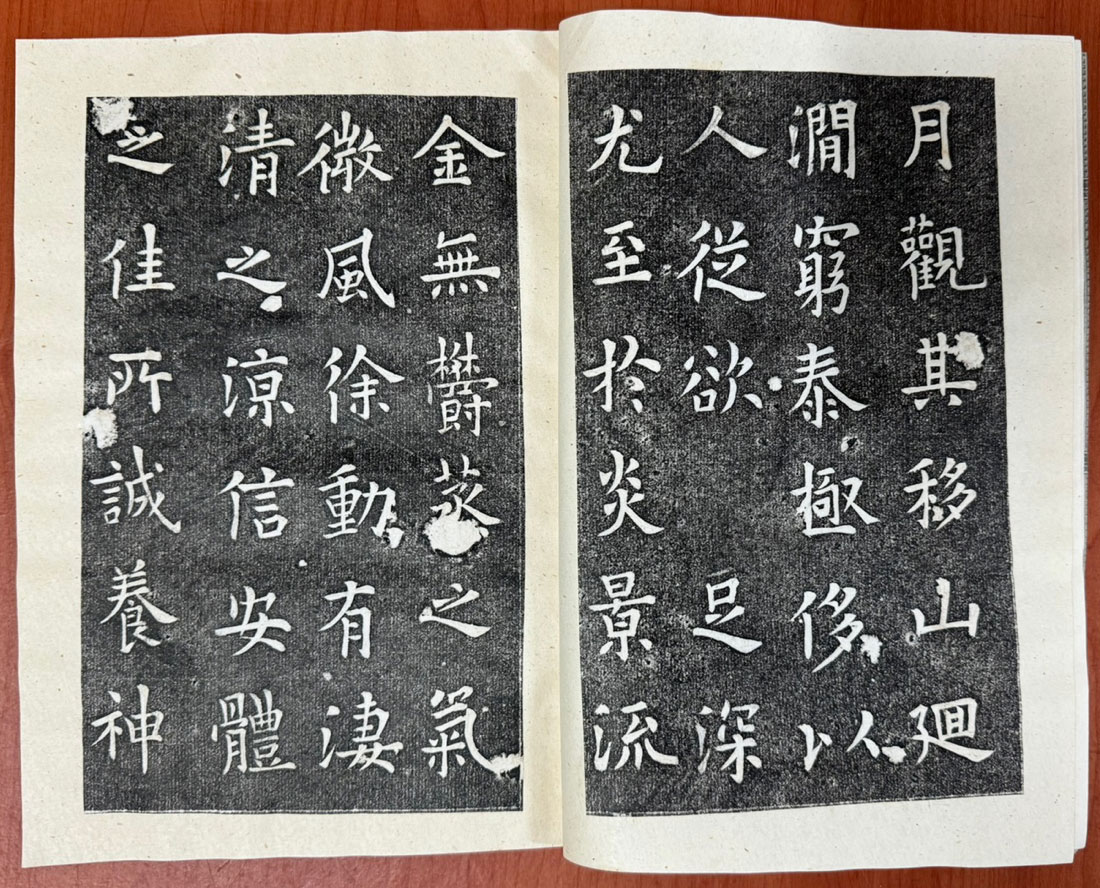 月觀其移山廻
澗窮泰極侈以
人從欲足深
尤至於炎景流
金無欝蒸之氣
微風徐動有淒
清之涼信安體
之佳所誠養神